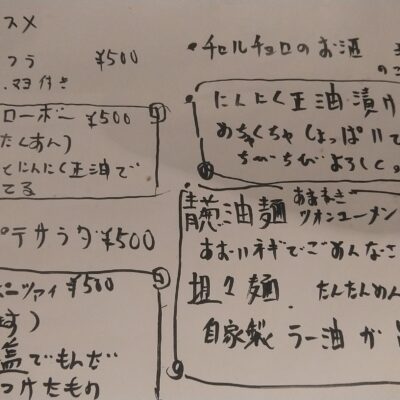 スメ
フラ ¥500
マヨ付き
ローボー ¥500
たくあん)
とにんにく正油で
てる
ポテサラダ ¥500
ベニツァイ ¥500
ます)
塩でもんだ
つけたもの
・チョルチョロのお酒
の
にんにく正油漬け
めちゃくちゃしょっぱいて
ちびちびよろしくっ
青葱油麺 あおねぎ ツオンユーメン
あおいネギでごめんなさ
担々麺 たんたんめん
自家製 ラー油が